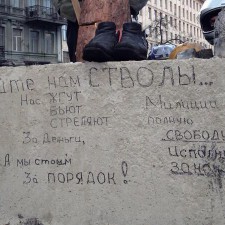 ите нам СТВОЛЫ...
Нас ЖГУТ
БЬЮТ
СТРЕЛЯЮТ
За Деньги,
А мы стоим
За ПОРЯДОК!
Милиции
полную
СВОБОДУ
Исполн
ЗАКО